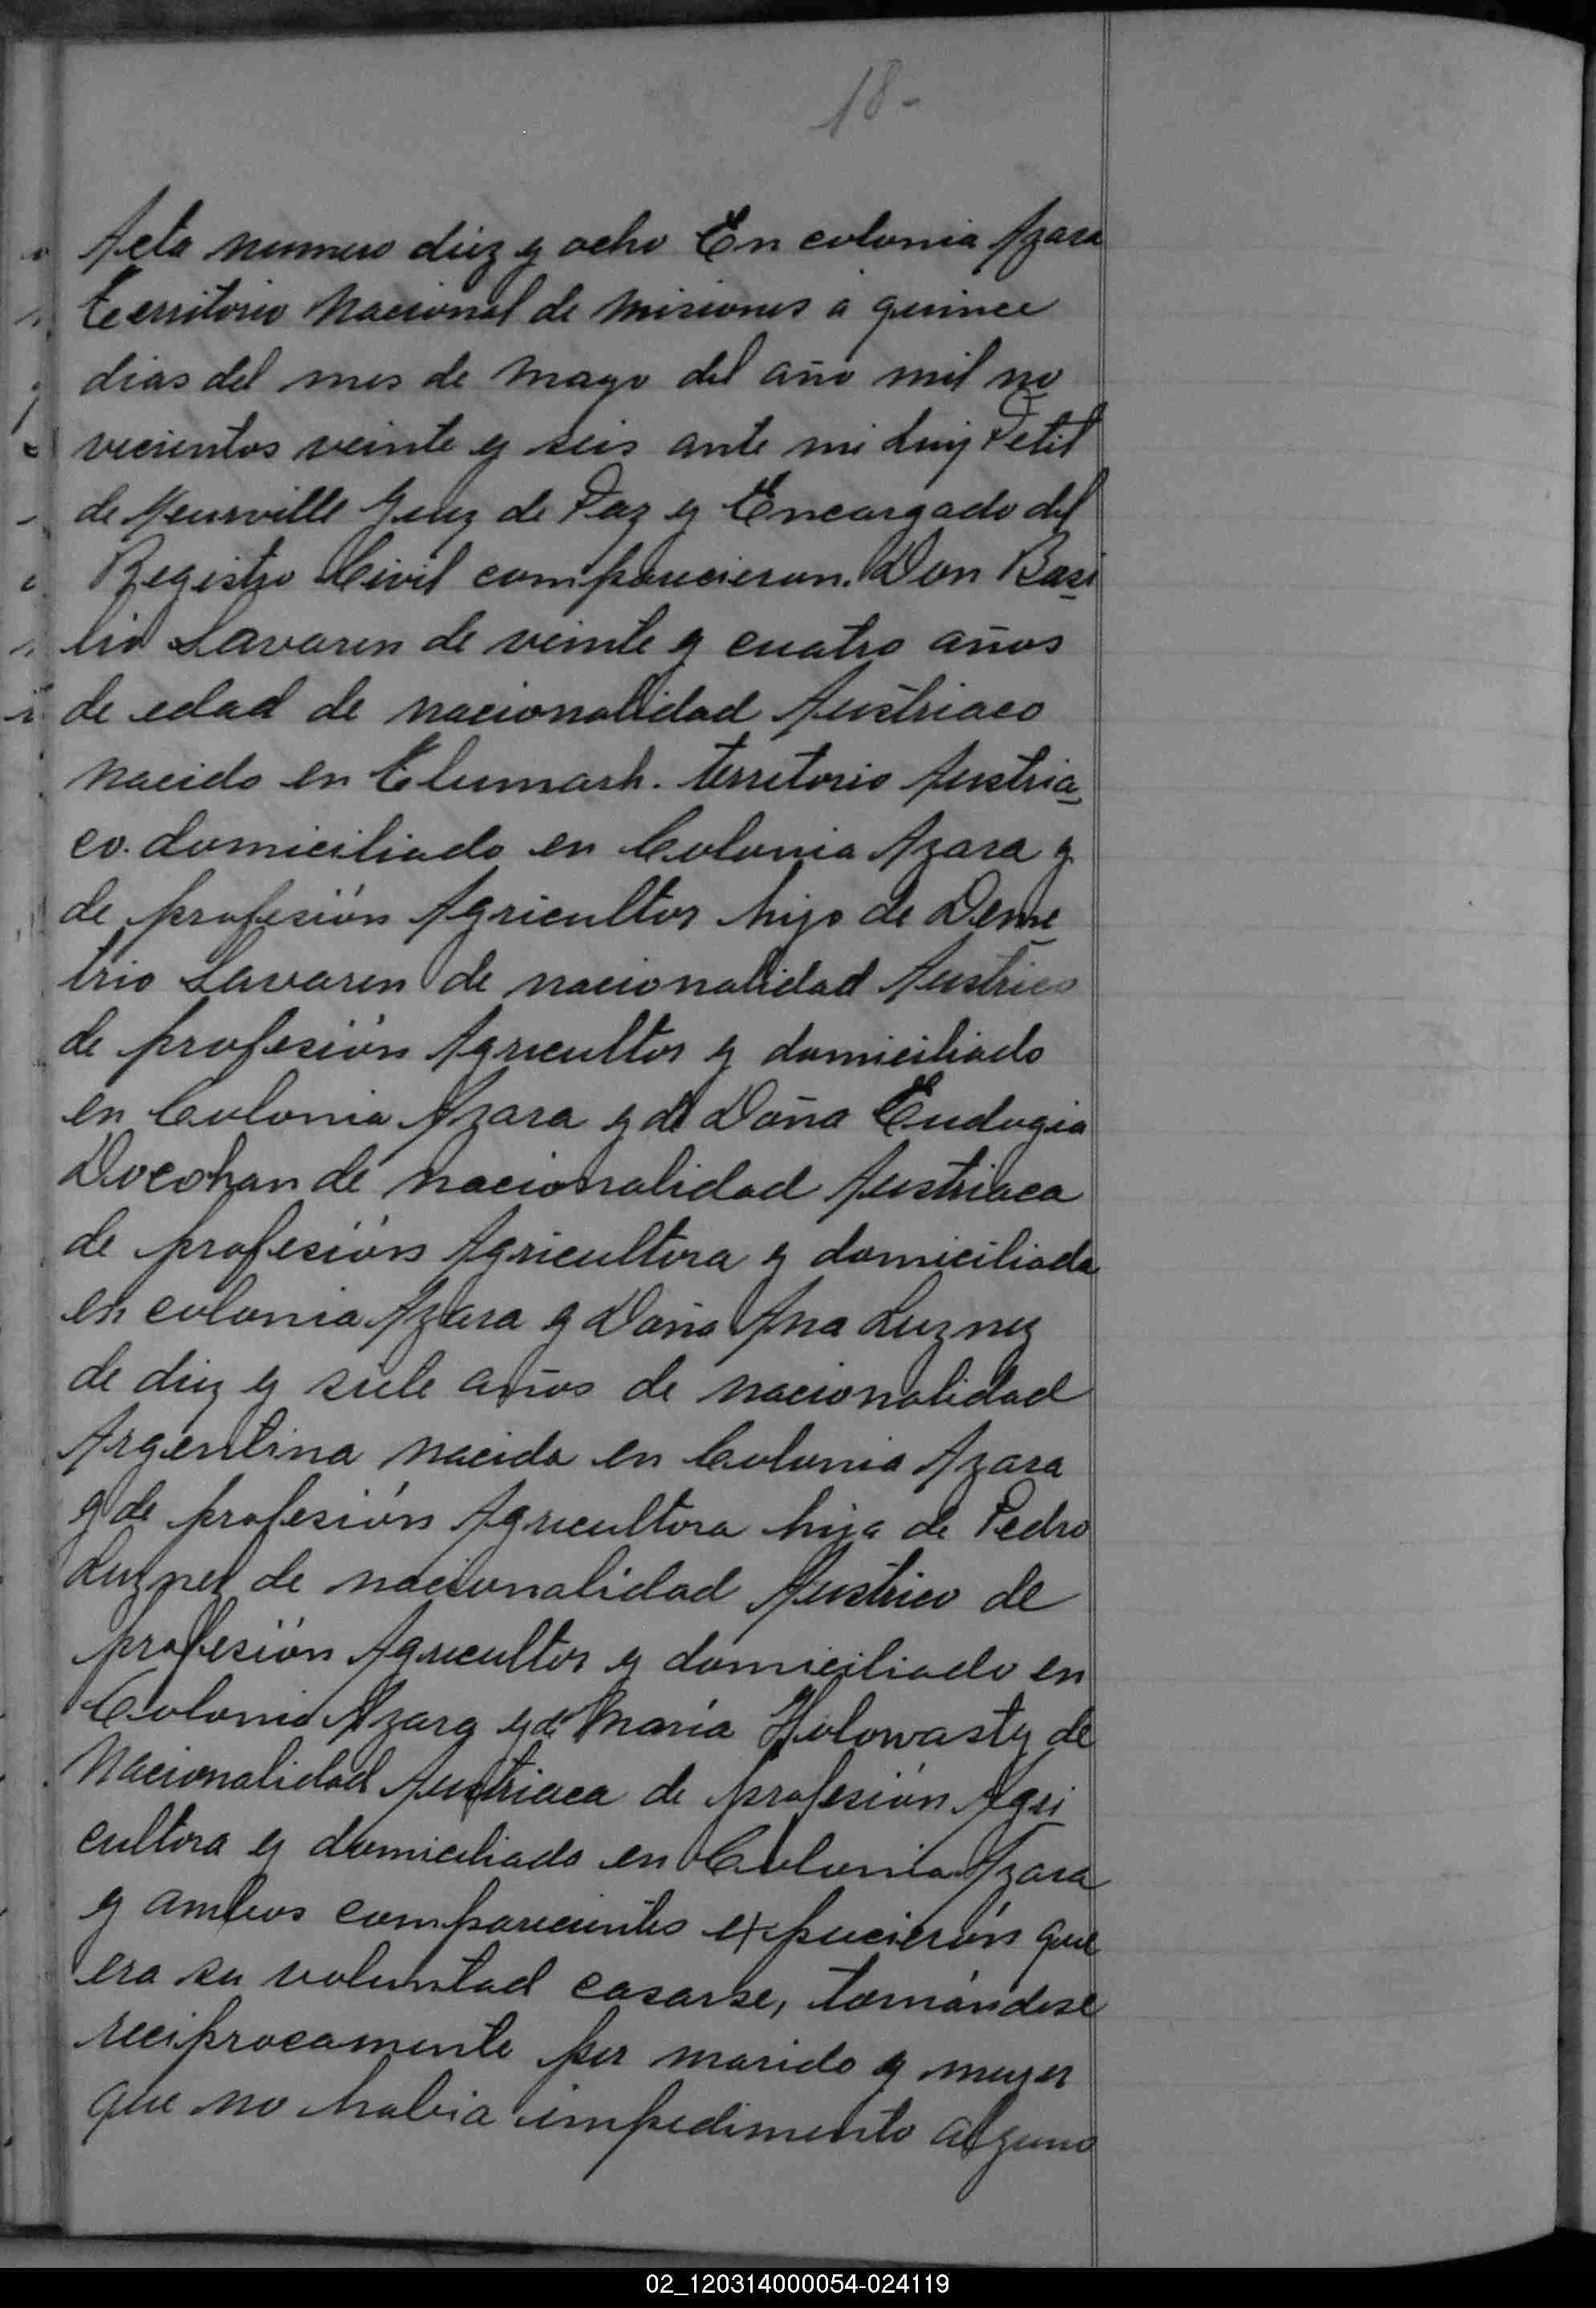 18-
Acta numero diez y ocho En colonia Azara
territorio Nacional de Misiones a quince
dias del mes de Mayo del año mil no
vecientos veinte y seis ante mi Luis Petit
de Meurville Juez de Paz y Encargado del
Registro Civil comparecieron. Don Basi
lio Lavaren de veinte y cuatro años
de edad de nacionalidad Austriaco
nacido en territorio Austria
co. domiciliado en Colonia Azara y
de profesión Agricultor hijo de Deme
trio Lavaren de nacionalidad Austrico
de profesión Agricultor y domiciliado
en Colonia Azara y de Doña Eudogia
de nacionalidad Austriaca
de profesión Agricultora y domiciliada
en colonia Azara y Doña Ana Luznez
de diez y siete años de nacionalidad
Argentina nacida en Colonia Azara
y de profesión Agricultora hija de Pedro
Luznez de nacionalidad Austrico de
profesión Agricultor y domiciliado en
Colonia Azara y de Maria Holowasty de
Nacionalidad Austriaca de profesión Agri
cultora y domiciliada en Colonia Azara
y ambos comparecientes expucierón que
era su voluntad casarse, tomándose
reciprocamente por marido y mujer
que no habia impedimento alguno
02_120314000054-024119